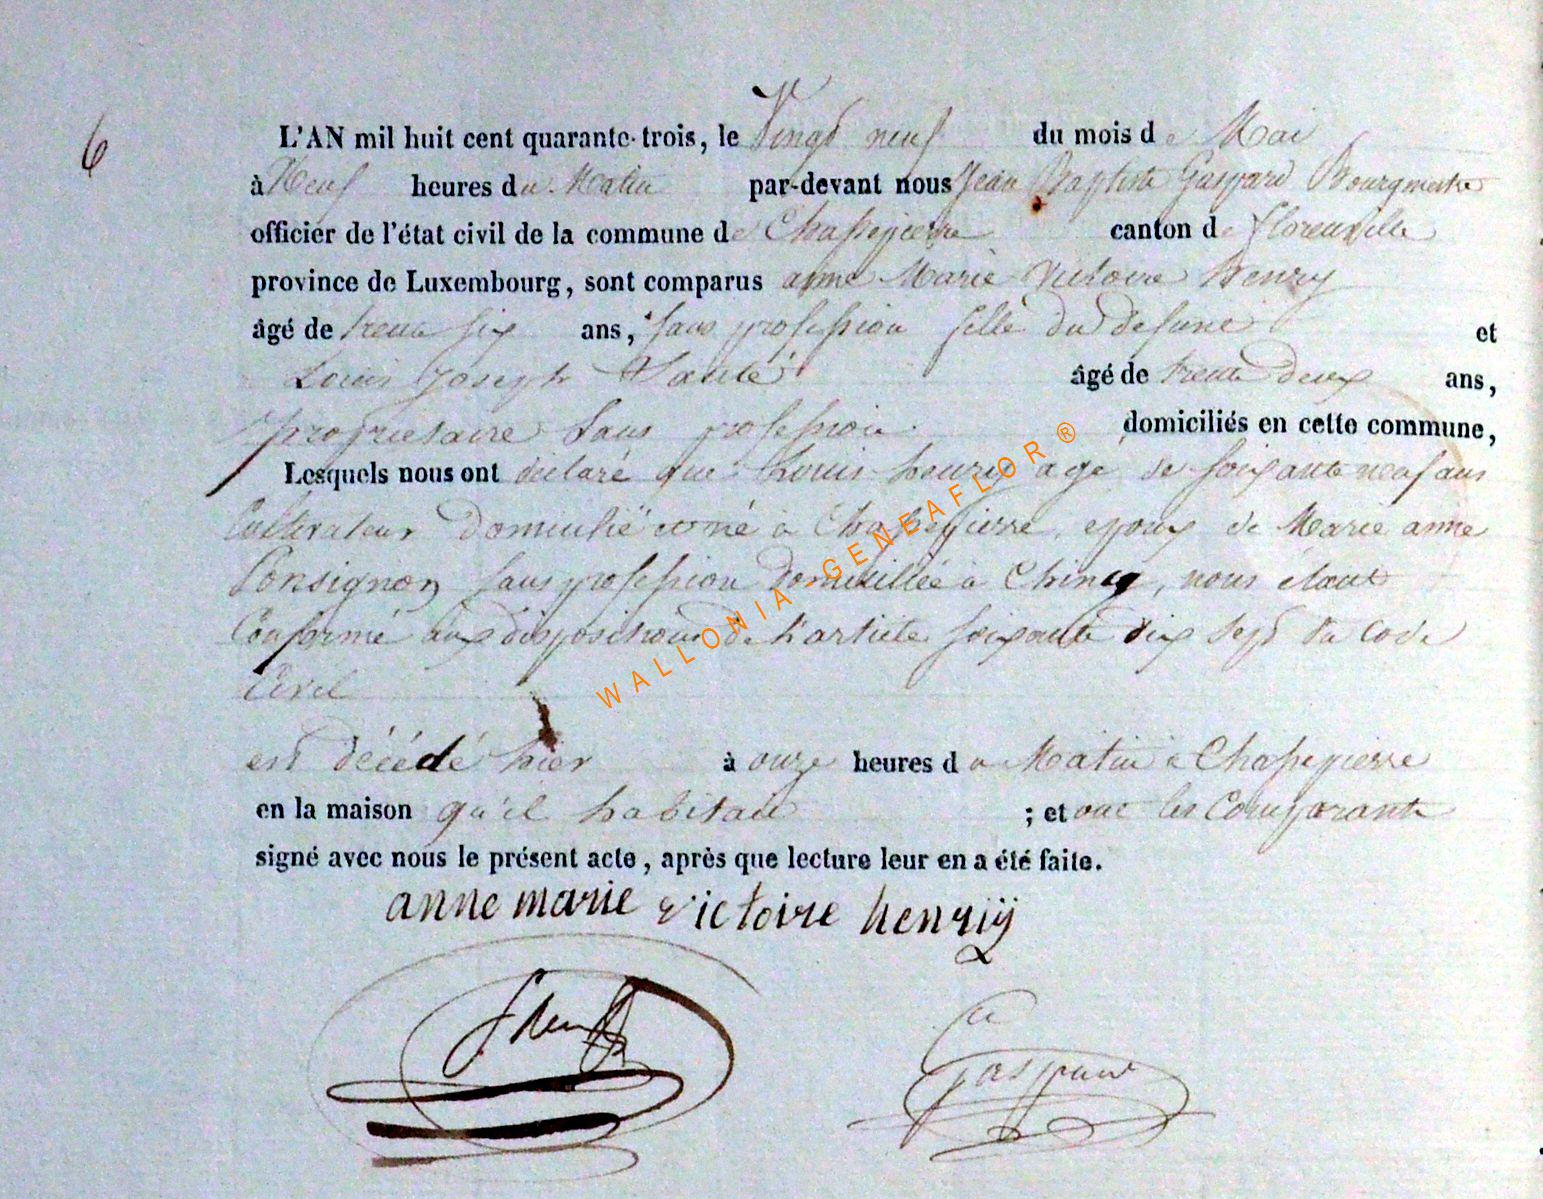 6
L'AN mil huit cent quarante-trois, le Vingt neuf du mois de Mai
à Neuf heures du Matin par-devant nous Jean Baptiste Gaspard Bourgmestre
officier de l'état civil de la commune de Chassepierre canton de florenville
province de Luxembourg, sont comparus anne Marie Victoire henry
âgé de trente six ans, sans profession fille du défunt et
Louis Joseph âgé de trente deux ans,
propriétaire Sans profession domiciliés en cette commune,
Lesquels nous ont déclaré que Louis henry agé de soixante neuf ans
Cultivateur domicilié et né à Chassepierre, epoux de Marie anne
Ponsignon sans profession domiciliée à Chiny, nous étant
Conformé aux dispositions de l'article soixante dix sept du Code
Civil
est décédé hier à onze heures du Matin à Chassepierre
en la maison qu'il habitait ; et ont les Comparants
signé avec nous le présent acte, après que lecture leur en a été faite.
anne marie victoire henrÿ
Gaspard
WALLONIA GENEAFLOR ®